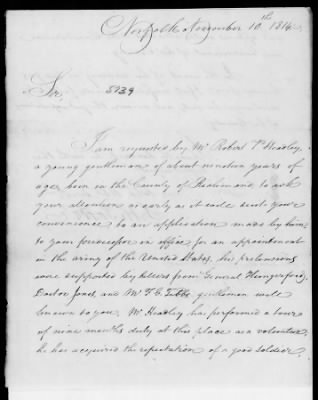 Norfolk November 10th 1814
Sir,
5739
I am requested by Mr Robert P. Headley,
a young gentleman of about nineteen years of
age, born in the County of Richmond, to ask
your attention as early as it will suit your
convenience to an application made by him
to your foregoer in office for an appointment
in the army of the United States, his pretensions
were supported by letters from General Hungerford,
Doctor Jones, and Mr T. G. Tebbs gentlemen well
known to you. Mr Headley has performed a tour
of nine months duty at this place as a volunteer,
he has acquired the reputation of a good soldier,